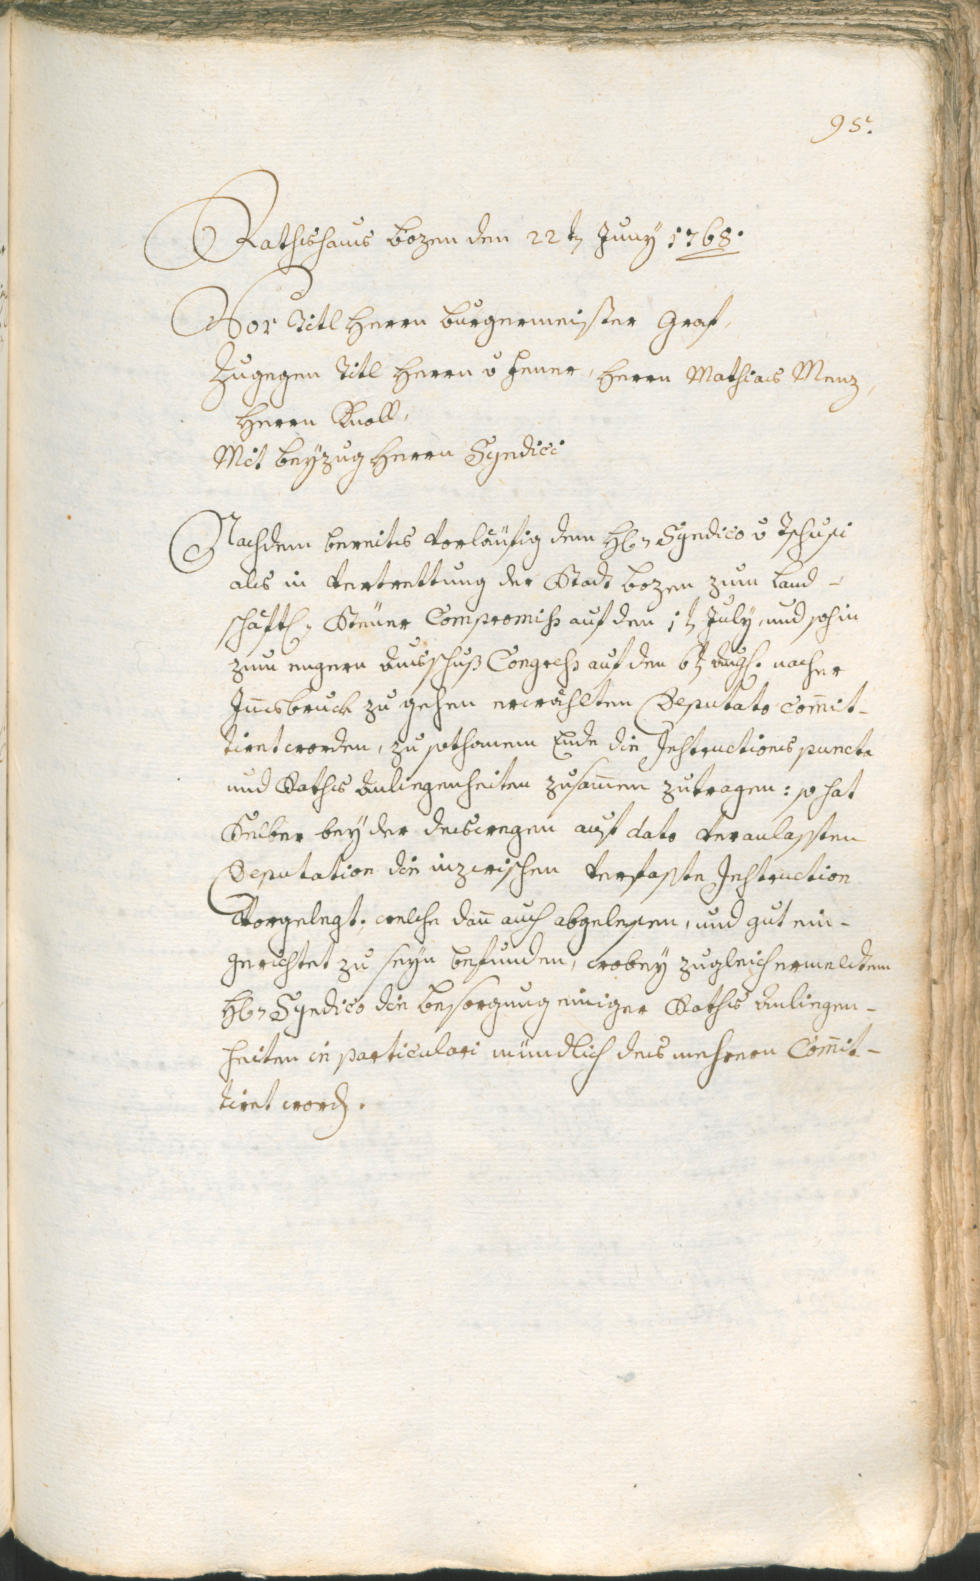 95.
Rathshaus Bozen den 22t. Juny 1768.
Vor Titl Herrn Burgermeister Graf,
Zugegen Titl Herrn v Jenner, Herrn Mathias Menz,
Herrn Knoll,
Mit beyzug Herrn Syndici
Nachdem bereits vorläufig dem H. Syndico v Tschusi
als in Vertrettung der Stadt Bozen zum Land-
schäftl. Steuer Compromiss auf den 1t July, und sohin
zum engern Ausschuß Congress auf den 6t Augst. nacher
Innsbruck zu gehen erwählten Deputato Com̄it-
tiret worden, zu sothanem Ende die Instructions puncta
und Raths Anliegenheiten zusam̄en zutragen: so hat
Selber bey der deswegen auf dato veranlassten
Deputation die inzwischen verfasste Instruction
Vorgelegt. welche dan̄ auch abgelesen, und gut ein-
gerichtet zu seyn befunden, wobey zugleich ermeldtem
H. Syndico die besorgung einiger Raths Anliegen-
heiten in particulari mündlich des mehrern Com̄it-
tiret word.